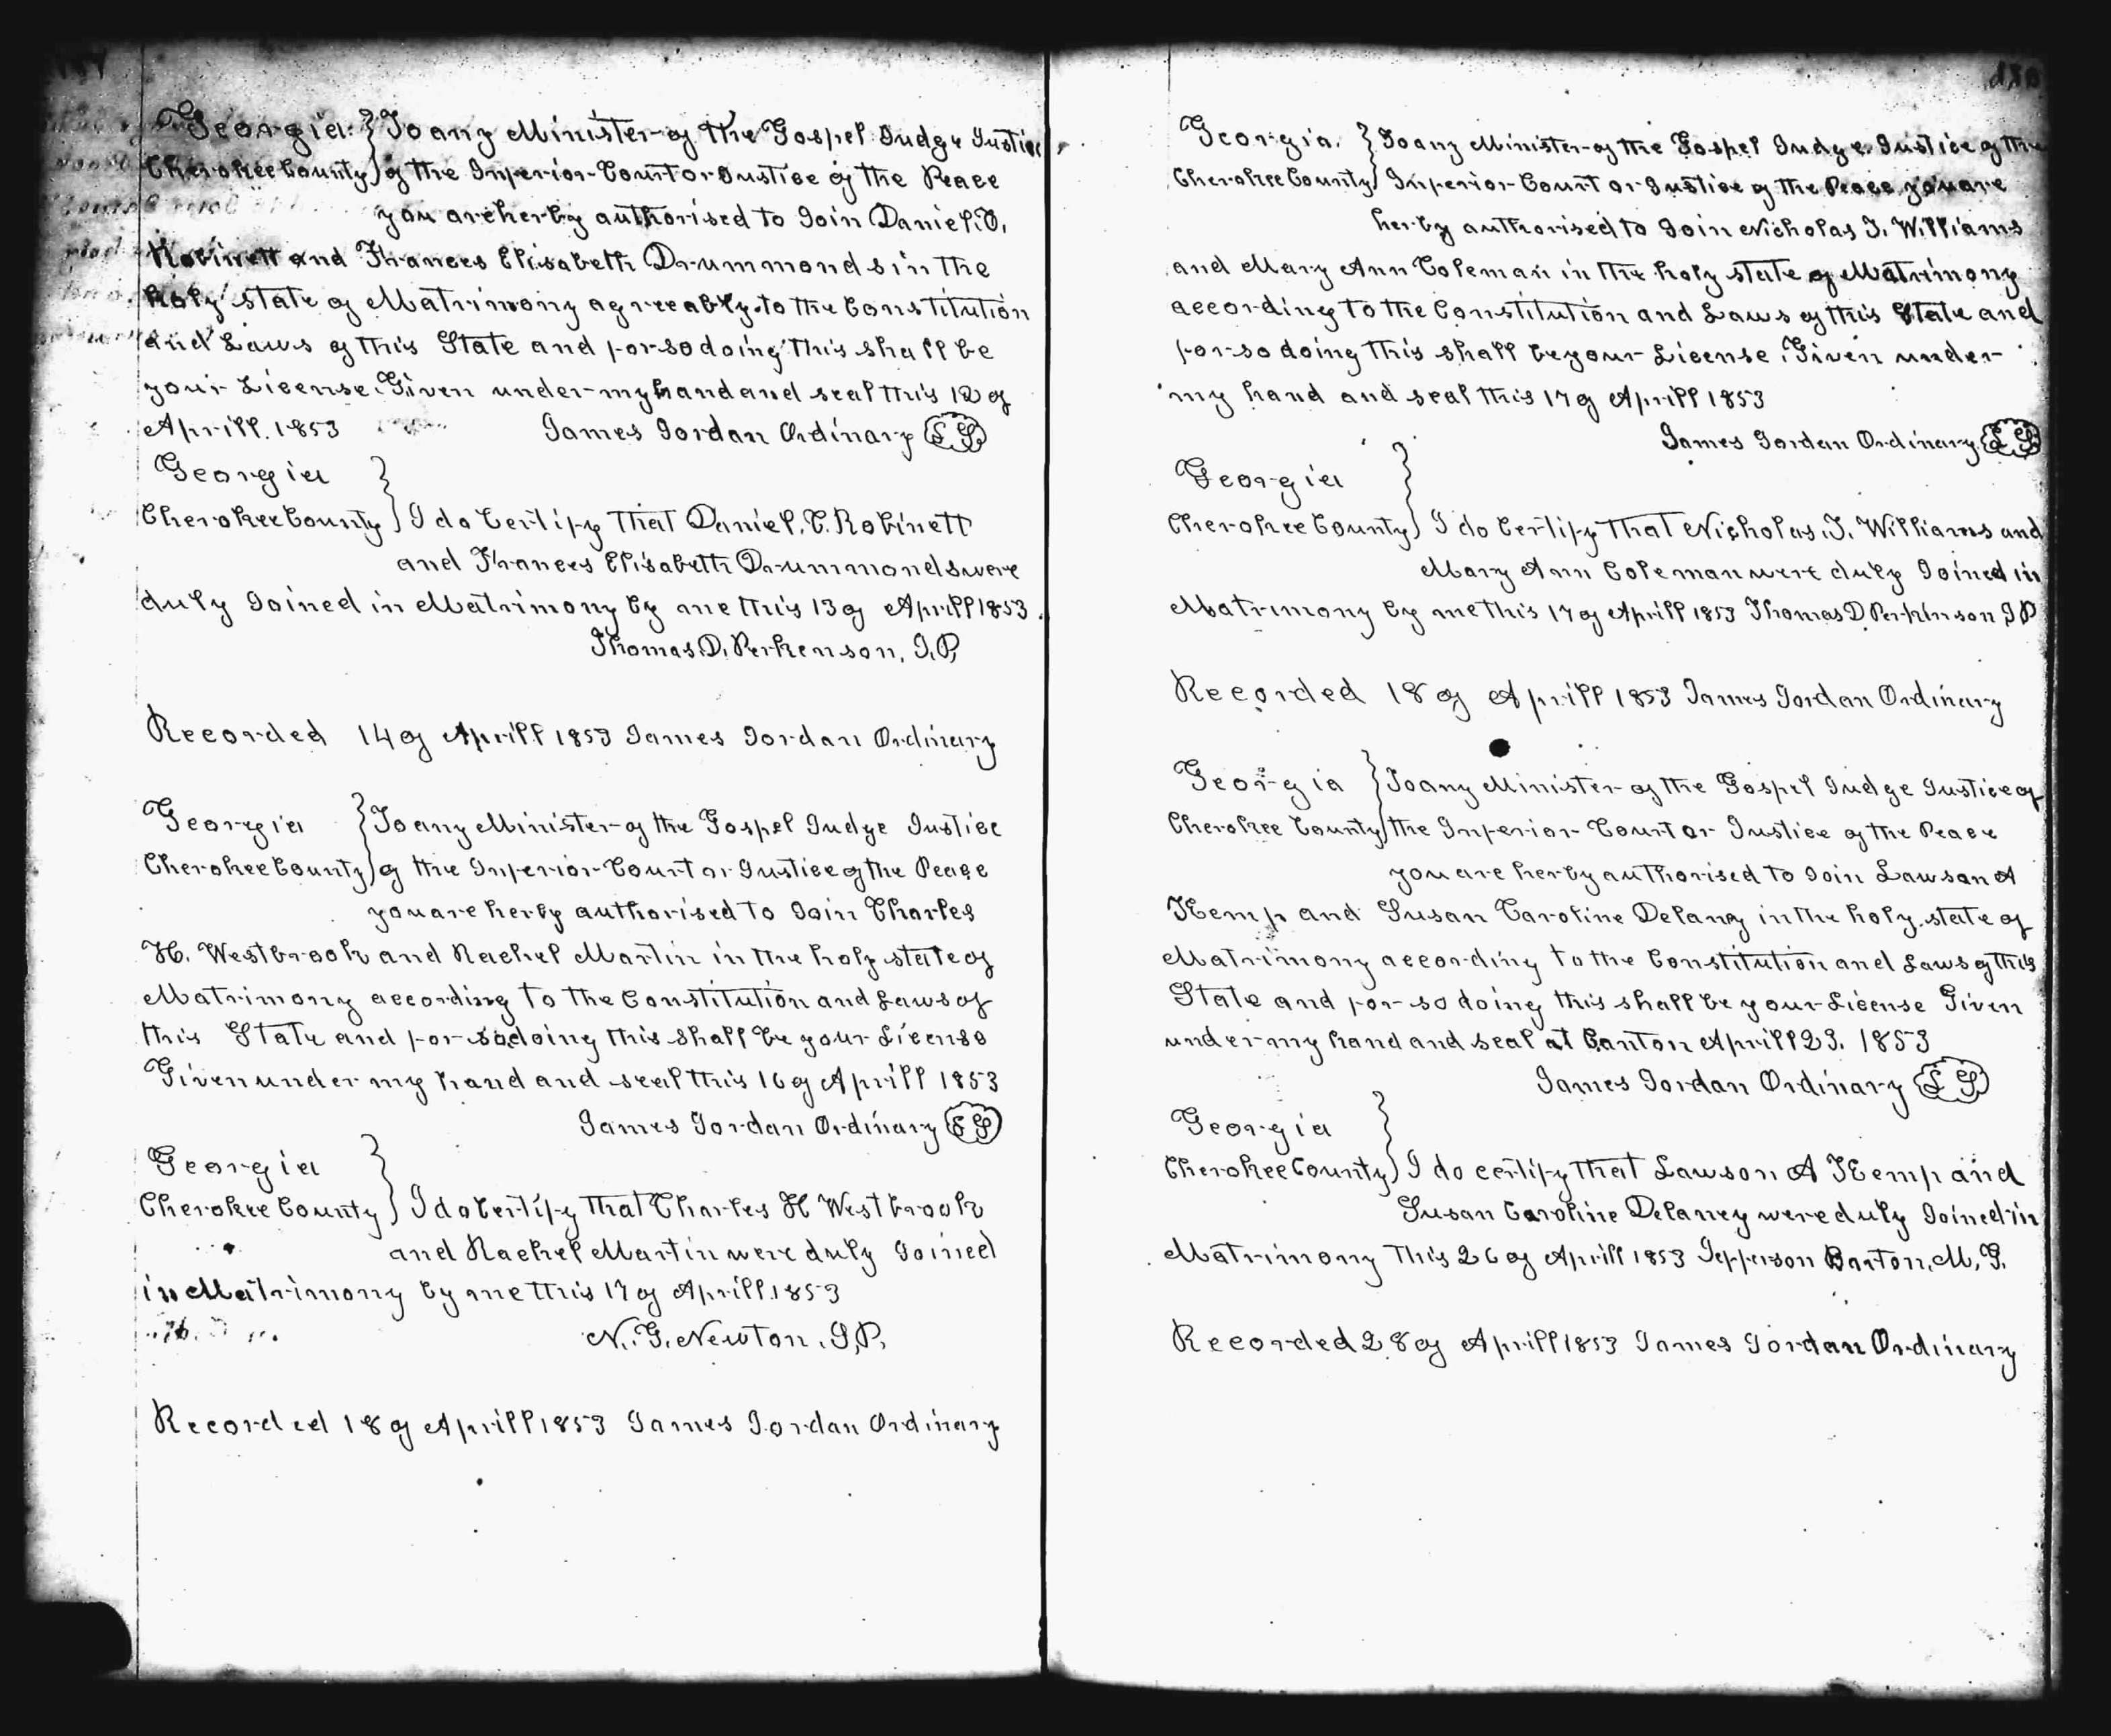 Georgia } To any Minister of the Gospel Judge Justice
Cherokee County } of the Inferior Court or Justice of the Peace
you are herby authorised to Join Daniel
Robinett and Frances Elisabeth Drummonds in the
holy state of Matrimony agreeably to the Constitution
and Laws of this State and for so doing this shall be
your License Given under my hand and seal this 12 of
Aprill. 1853 James Jordan Ordinary LS
Georgia }
Cherokee County } I do Certify That Daniel. C. Robinett
and Frances Elisabeth Drummonds were
duly Joined in Matrimony by me this 13 of Aprill 1853.
Thomas. D. Perkenson, J.P.
Recorded 14 of Aprill 1853 James Jordan Ordinary
Georgia } To any Minister of the Gospel Judge Justice
Cherokee County } of the Inferior Court or Justice of the Peace
you are herby authorised to Join Charles
H. Westbrook and Rachel Martin in the holy state of
Matrimony according to the Constitution and Laws of
this State and for so doing this shall be your License
Given under my hand and seal this 16 of Aprill 1853
James Jordan Ordinary LS
Georgia }
Cherokee County } I do Certify that Charles H Westbrook
and Rachel Martin were duly Joined
in Matrimony by me this 17 of Aprill. 1853
N. G. Newton. J.P.
Recorded 18 of Aprill 1853 James Jordan Ordinary
Georgia. } To any Minister of the Gospel Judge Justice of the
Cherokee County } Inferior Court or Justice of the Peace you are
herby authorised to Join Nicholas J. Williams
and Mary Ann Coleman in the holy state of Matrimony
according to the Constitution and Laws of this State and
for so doing this shall be your License. Given under
my hand and seal this 17 of Aprill 1853
James Jordan Ordinary LS
Georgia }
Cherokee County } I do Certify That Nicholas. J. Williams and
Mary Ann Coleman were duly Joined in
Matrimony by me this 17 of Aprill 1853 Thomas D Perkinson JP
Recorded 18 of Aprill 1853 James Jordan Ordinary
Georgia } To any Minister of the Gospel Judge Justice of
Cherokee County } the Inferior Court or Justice of the Peace
you are herby authorised to Join Lawson A
Kemp and Susan Caroline Delany in the holy state of
Matrimony according to the Constitution and Laws of this
State and for so doing this shall be your License Given
under my hand and seal at Canton Aprill 23. 1853
James Jordan Ordinary LS
Georgia }
Cherokee County } I do certify that Lawson A Kemp and
Susan Caroline Delaney were duly Joined in
Matrimony This 26 of Aprill 1853 Jefferson Barton, M, G.
Recorded 28 of Aprill 1853 James Jordan Ordinary